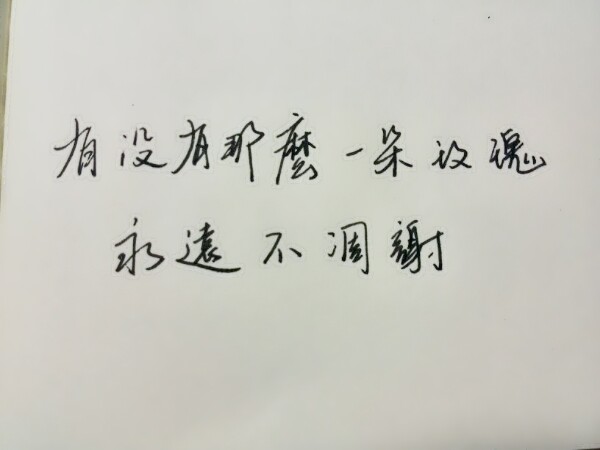 有没有那麼一朵玫瑰
永遠不凋謝